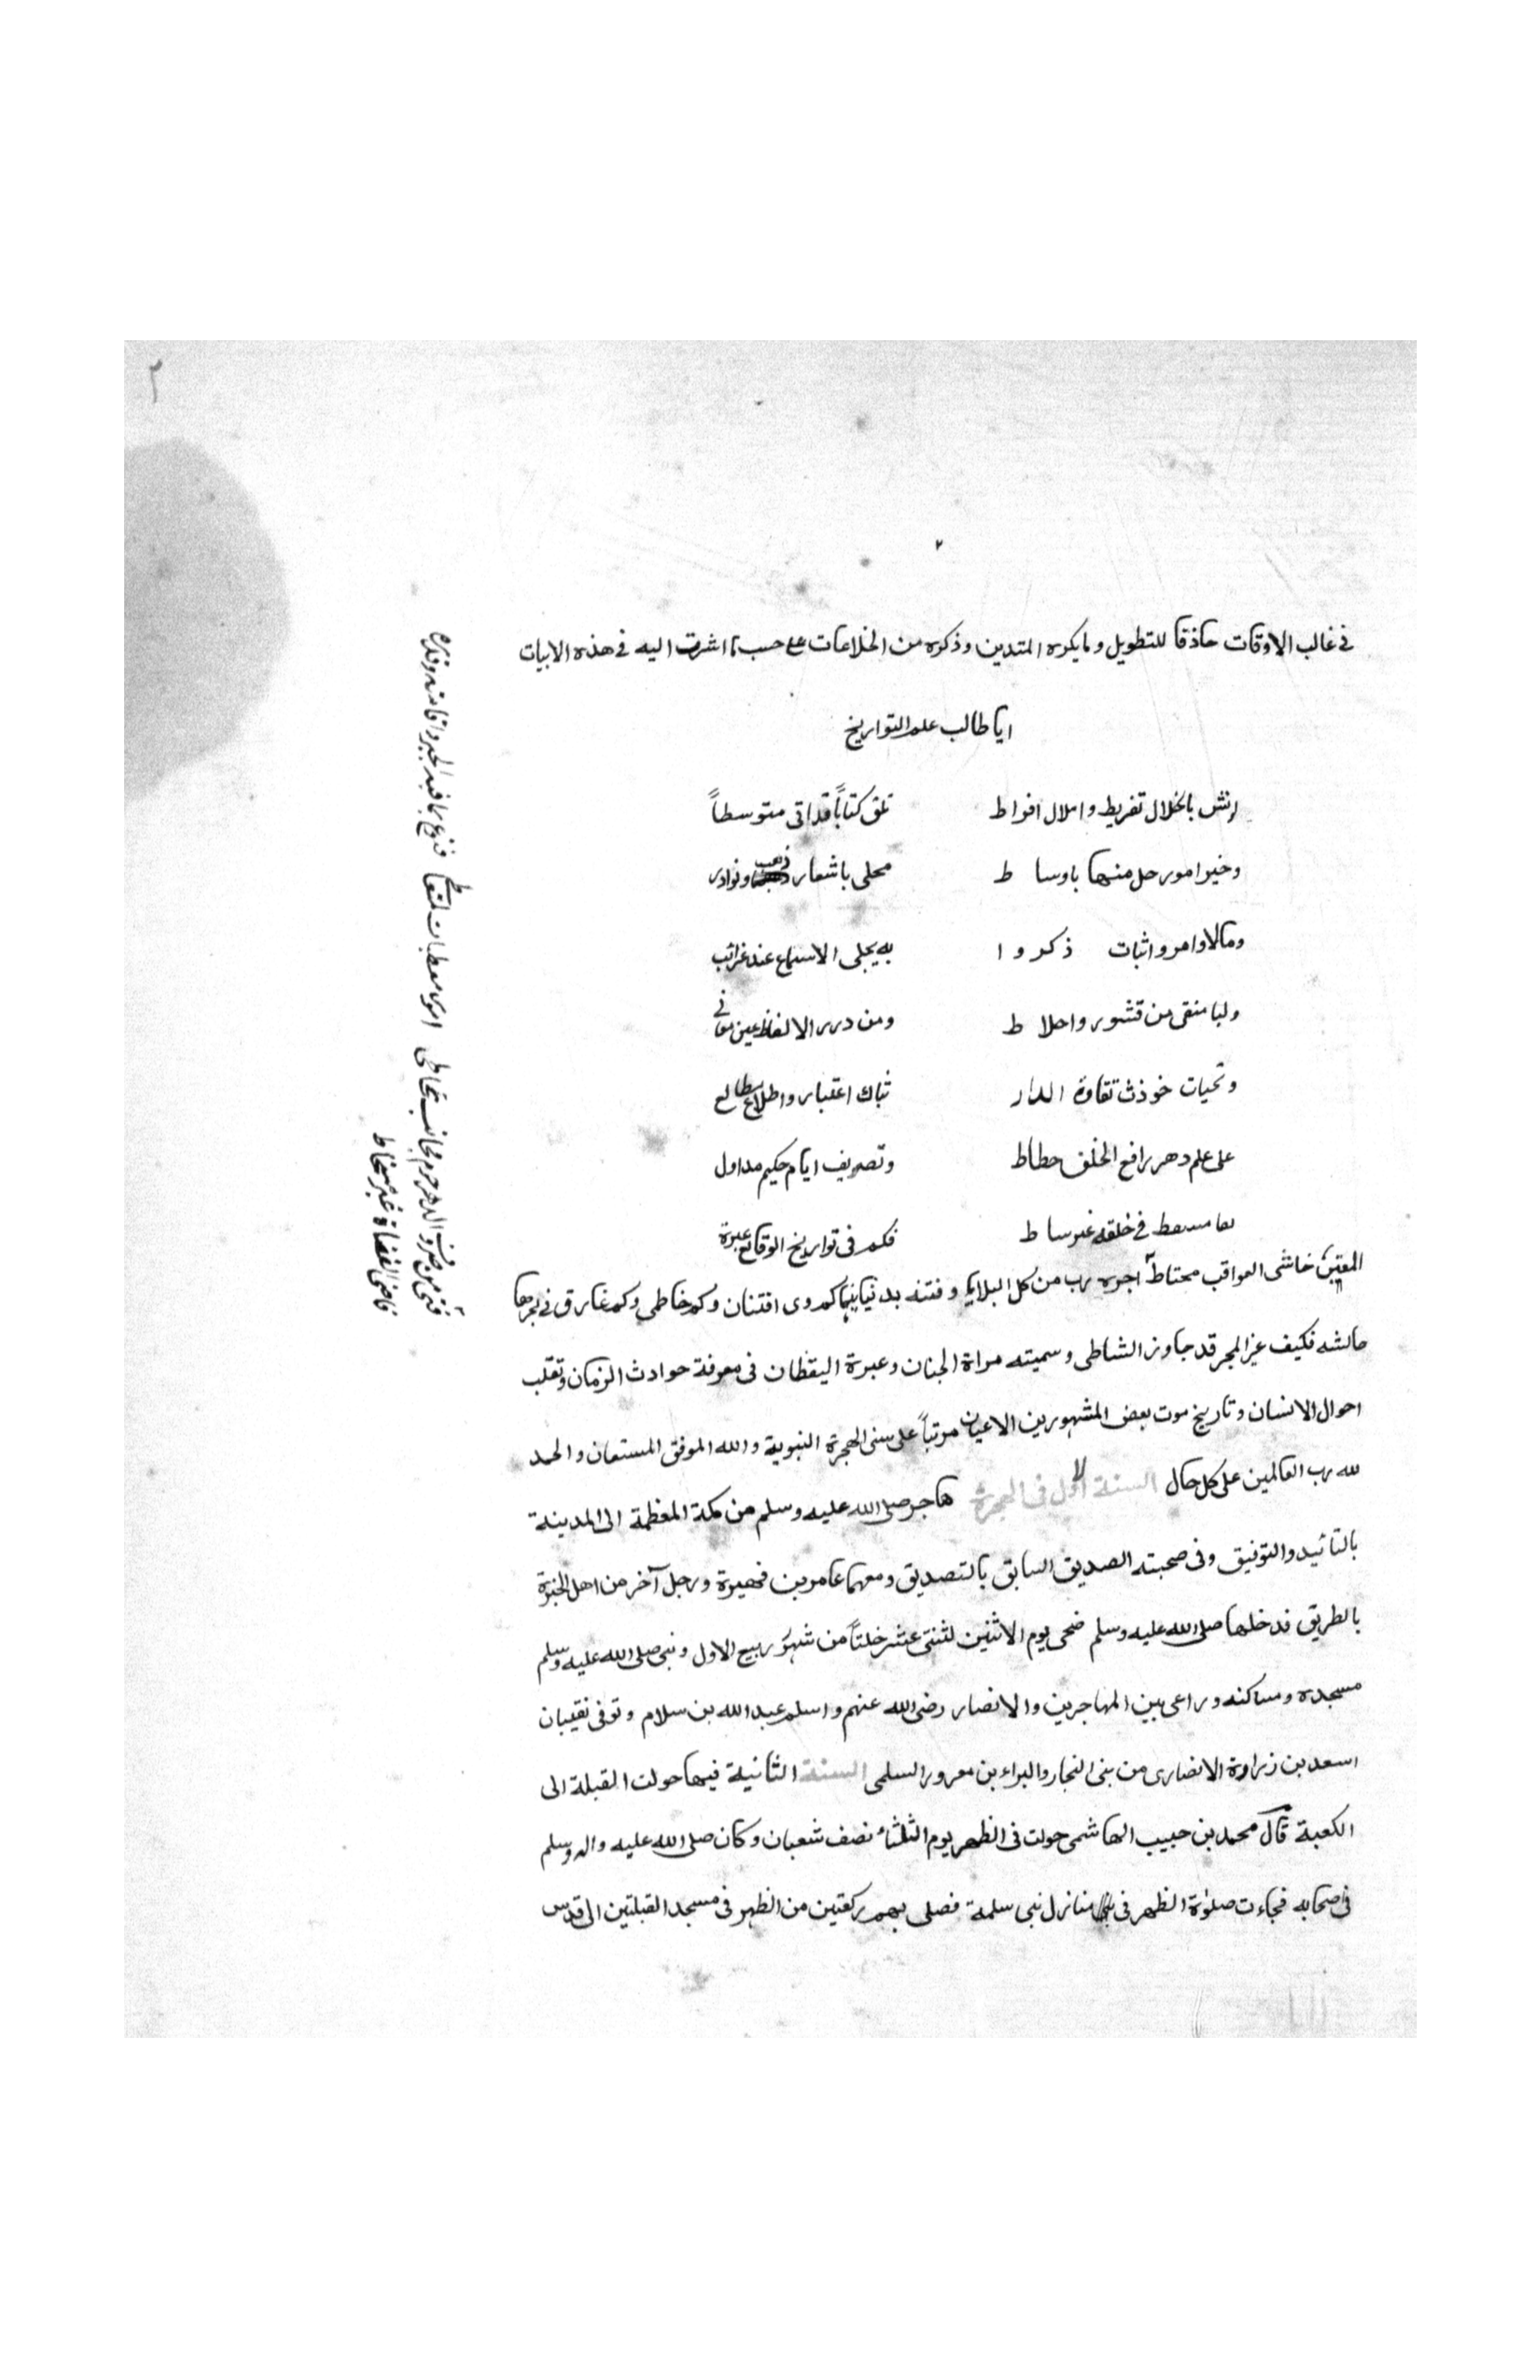 ٢
في غالب الاوقات حاذفا للتطويل وما يكره المتدين وذكره من الخلاعات على حسب ما اشرت اليه في هذه الابيات
ايا طالب علم التواريخ
بالخلال تفريط واملال افراط تلق كتاباً قد اتى متوسطاً
وخير امور حل منها باوساط محلى باشعار ذهب ونوادر
ومالاوامر واثبات ذكروا به يجلى الاسماع عند غرائب
ولبا منقى من قشور واحلاط ومن درر الالفاظ عين معاني
وتحيات نقاوة الدار اعتبار واطلاع مطالع
على علم دهر رافع الخلق حطاط وتصريف ايام حكيم مداول
في خلقه غير ساط فكم في تواريخ الوقائع عبرة
المعتبر خاشى العواقب محتاط اجره رب من كل البلايا وفتنة بدنيا بنيها كم ذوى افتنان وكم خاطى وكم غارق في بحرها
فكيف غير المجر قد جاوز الشاطى وسميته مراة الجنان وعبرة اليقظان في معرفة حوادث الزمان وتقلب
احوال الانسان وتاريخ موت بعض المشهورين الاعيان مرتباً على سنى الهجرة النبوية والله الموفق المستعان والحمد
لله رب العالمين على كل حال السنة الاول في الهجرة هاجر صلى الله عليه وسلم من مكة المعظمة الى المدينة
بالتائيد والتوفيق وفى صحبته الصديق السابق بالتصديق ومعهما عامر بن فهيرة ورجل آخر من اهل الخبرة
بالطريق فدخلها صلى الله عليه وسلم ضحى يوم الاثنين لثنتى عشر خلتا من شهر ربيع الاول وبنى صلى الله عليه وسلم
مسجده ومساكنه وراعى بين المهاجرين والانصار رضى الله عنهم واسلم عبد الله بن سلام وتوفى نقيبان
اسعد بن زرارة الانصارى من بنى النجار والبراء بن معرور السلمى السنة الثانية فيها حولت القبلة الى
الكعبة قال محمد بن حبيب الهاشمى حولت فى الظهر يوم الثلثاء نصف شعبان وكان صلى الله عليه واله وسلم
فى اصحابه فجاءت صلوة الظهر فى منازل بنى سلمة فصلى بهم ركعتين من الظهر فى مسجد القبلتين الى قدس
فتى من صروف الدهر
قاضى القضاة غير